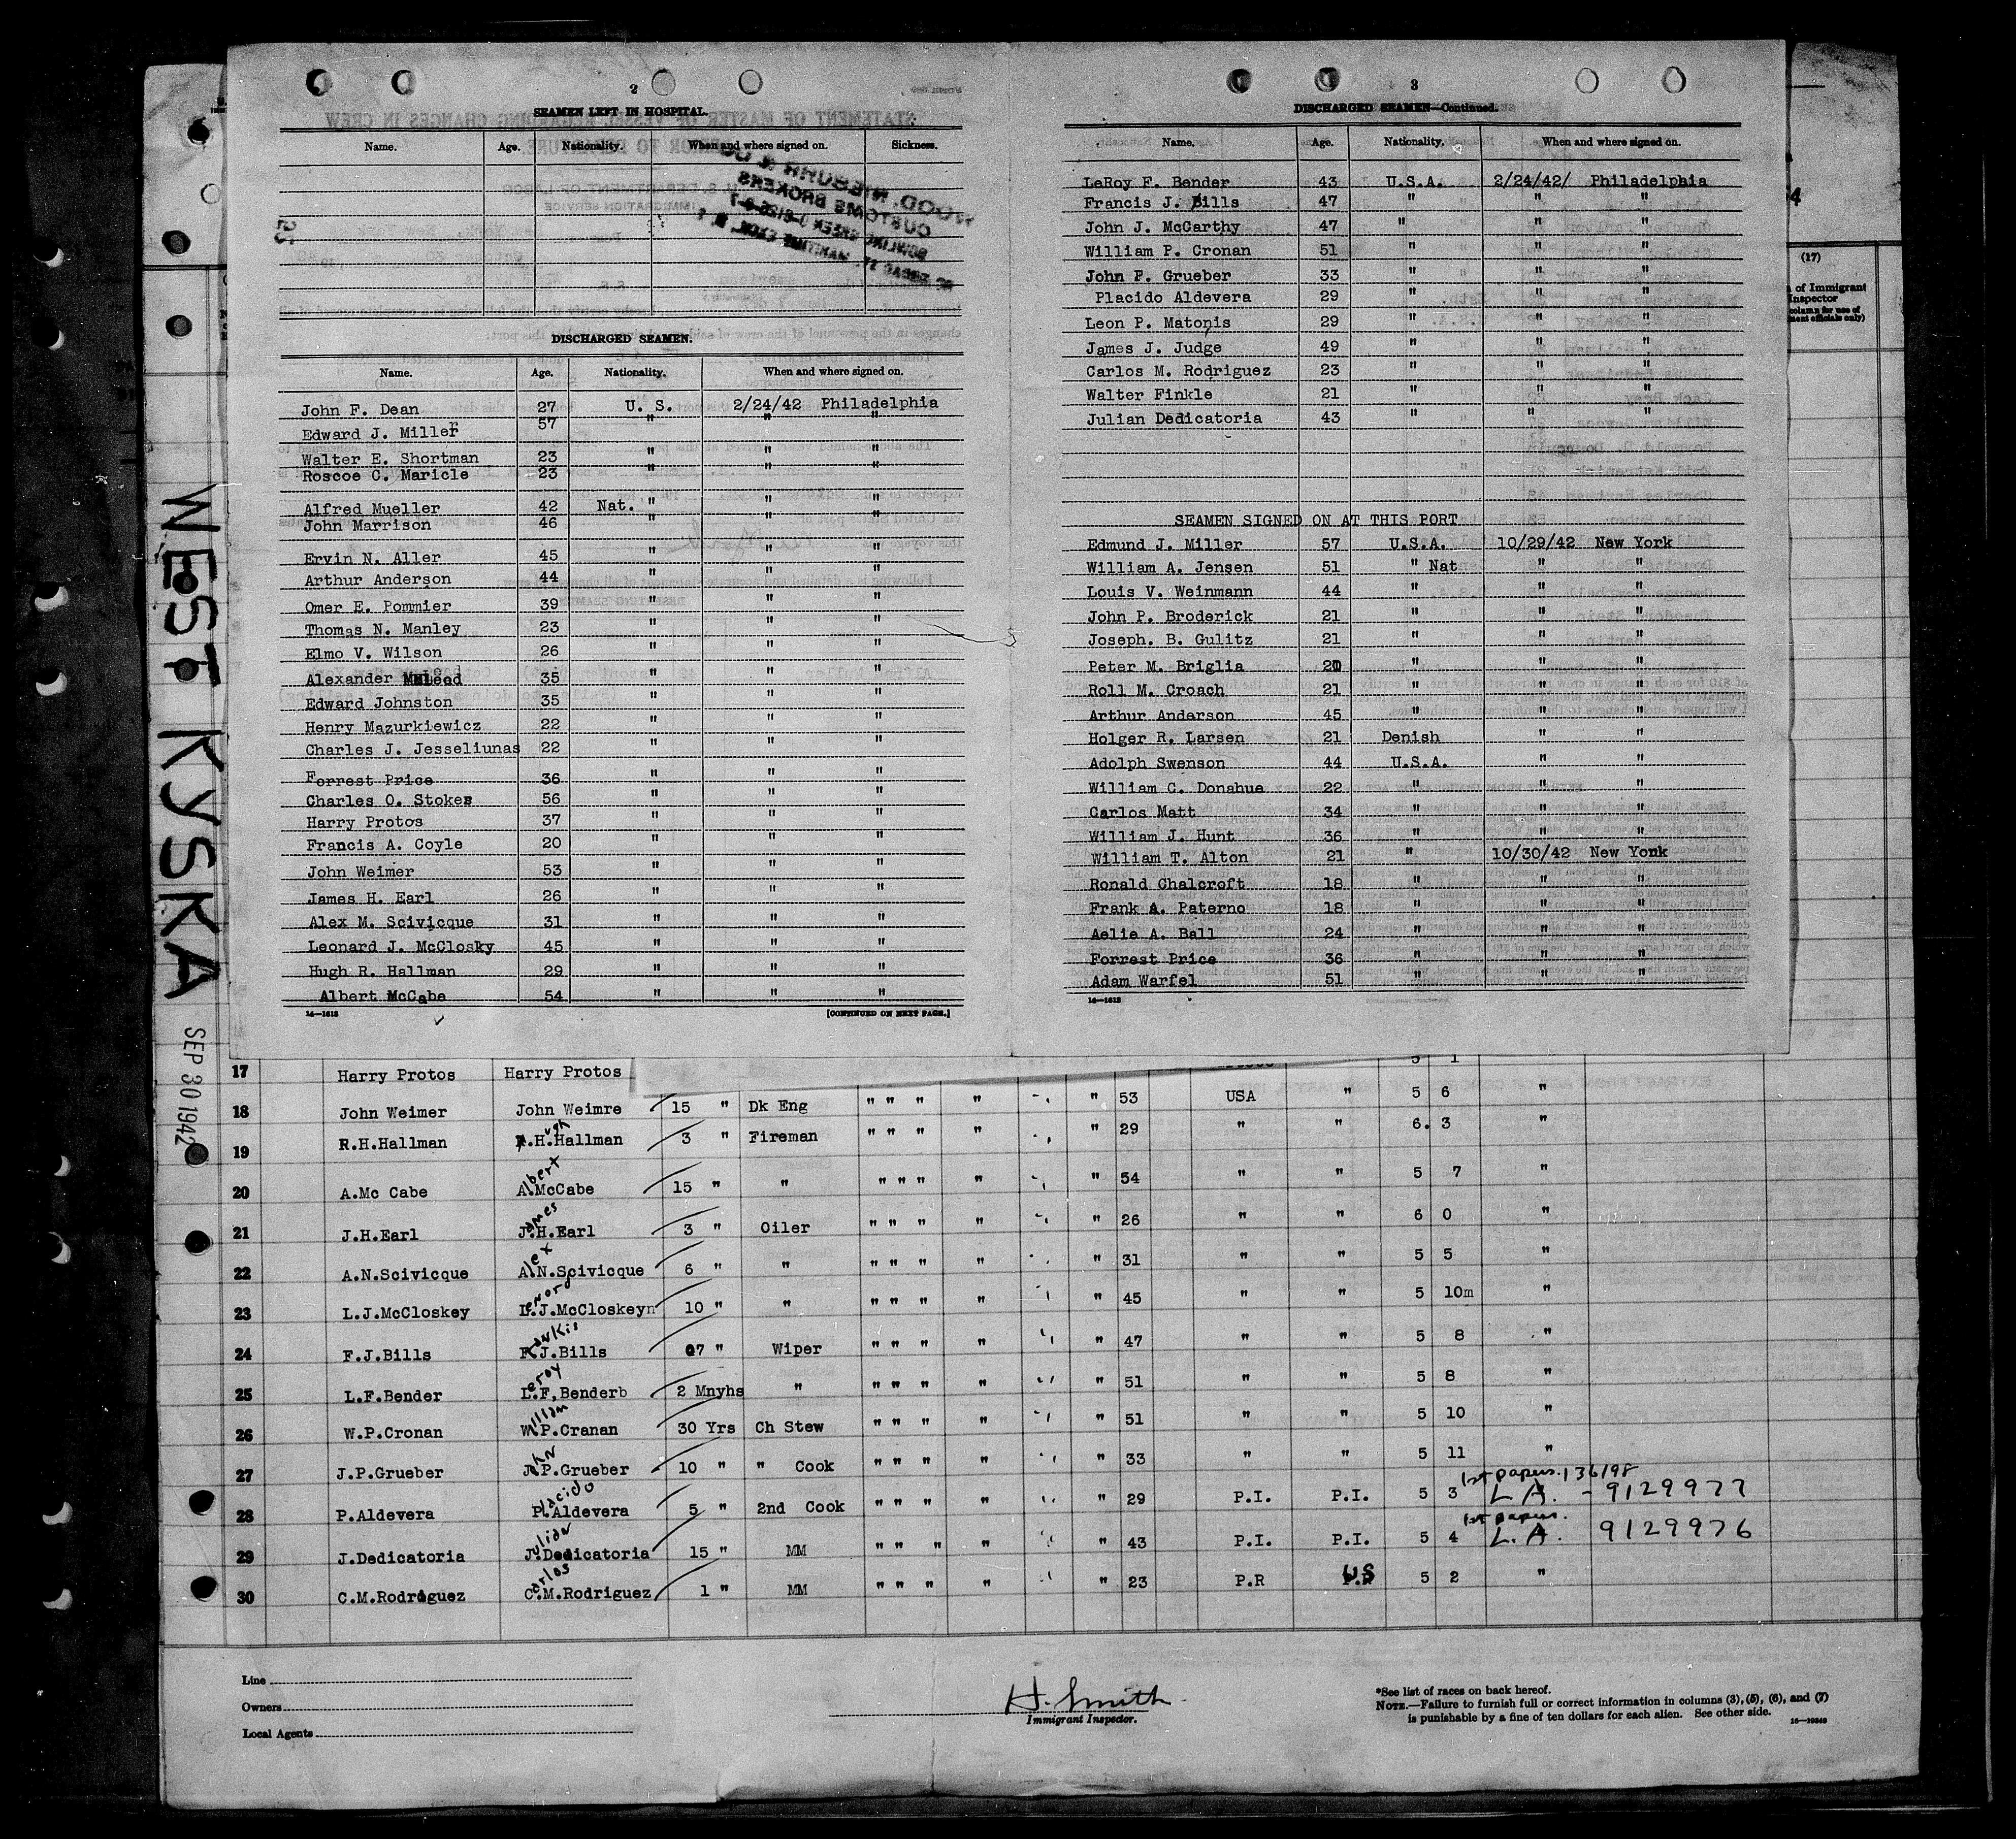 2
SEAMEN LEFT IN HOSPITAL.
Name. Age. Nationality. When and where signed on. Sickness.
DISCHARGED SEAMEN.
Name. Age. Nationality. When and where signed on.
John F. Dean 27 U. S. 2/24/42 Philadelphia
Edward J. Miller 57 " " "
Walter E. Shortman 23 " " "
Roscoe C. Maricle 23 " " "
Alfred Mueller 42 Nat. " " "
John Marrison 46 " " "
Ervin N. Aller 45 " " "
Arthur Anderson 44 " " "
Omer E. Pommier 39 " " "
Thomas N. Manley 23 " " "
Elmo V. Wilson 26 " " "
Alexander McLeod 35 " " "
Edward Johnston 35 " " "
Henry Mazurkiewicz 22 " " "
Charles J. Jesseliunas 22 " " "
Forrest Price 36 " " "
Charles O. Stokes 56 " " "
Harry Protos 37 " " "
Francis A. Coyle 20 " " "
John Weimer 53 " " "
James H. Earl 26 " " "
Alex M. Scivicque 31 " " "
Leonard J. McClosky 45 " " "
Hugh R. Hallman 29 " " "
Albert McCabe 54 " " "
14—1613 [CONTINUED ON NEXT PAGE.]
3
DISCHARGED SEAMEN—Continued.
Name. Age. Nationality. When and where signed on.
LeRoy F. Bender 43 U.S.A. 2/24/42/ Philadelphia
Francis J. Bills 47 " " "
John J. McCarthy 47 " " "
William P. Cronan 51 " " "
John P. Grueber 33 " " "
Placido Aldevera 29 " " "
Leon P. Matonis 29 " " "
James J. Judge 49 " " "
Carlos M. Rodriguez 23 " " "
Walter Finkle 21 " " "
Julian Dedicatoria 43 " " "
SEAMEN SIGNED ON AT THIS PORT
Edmund J. Miller 57 U.S.A. 10/29/42 New York
William A. Jensen 51 " Nat " "
Louis V. Weinmann 44 " " "
John P. Broderick 21 " " "
Joseph. B. Gulitz 21 " " "
Peter M. Briglia 20 " " "
Roll M. Croach 21 " " "
Arthur Anderson 45 " " "
Holger R. Larsen 21 Denish " "
Adolph Swenson 44 U.S.A. " "
William C. Donahue 22 " " "
Carlos Matt 34 " " "
William J. Hunt 36 " " "
William T. Alton 21 " 10/30/42 New York
Ronald Chalcroft 18 " " "
Frank A. Paterno 18 " " "
Aelie A. Ball 24 " " "
Forrest Price 36 " " "
Adam Warfel 51 " " "
14—1613
(17)
of Immigrant
Inspector
column for use of
ment officials only)
WEST KYSKA
SEP 30 1942
17 Harry Protos Harry Protos 5 1
18 John Weimer John Weimre 15 " Dk Eng " " " " " 53 USA " 5 6 "
19 R.H.Hallman R.H.Hallman 3 " Fireman " " " " " 29 " " 6. 3 "
20 A.Mc Cabe Albert A.McCabe 15 " " " " " " " 54 " " 5 7 "
21 J.H.Earl James J.H.Earl 3 " Oiler " " " " " 26 " " 6 0 "
22 A.N.Scivicque Alex A.N.Scivicque 6 " " " " " " " 31 " " 5 5 "
23 L.J.McCloskey L.J.McCloskeyn 10 " " " " " " " 45 " " 5 10m "
24 F.J.Bills F.J.Bills 07 " Wiper " " " " " 47 " " 5 8 "
25 L.F.Bender Leroy L.F.Benderb 2 Mnyhs " " " " " " 51 " " 5 8 "
26 W.P.Cronan William W.P.Cranan 30 Yrs Ch Stew " " " " " 51 " " 5 10 "
27 J.P.Grueber John J.P.Grueber 10 " " Cook " " " " " 33 " " 5 11 "
28 P.Aldevera Placido P.Aldevera 5 " 2nd Cook " " " " " 29 P.I. P.I. 5 3 1st papers. 136198 L.A. - 9129977
29 J.Dedicatoria Julian J.Dedicatoria 15 " MM " " " " 43 P.I. P.I. 5 4 1st papers. L.A. 9129976
30 C.M.Rodriguez Carlos C.M.Rodriguez 1 " MM " " " " " 23 P.R US 5 2 "
Line
Owners
Local Agents
H. Smith
Immigrant Inspector.
*See list of races on back hereof.
NOTE.—Failure to furnish full or correct information in columns (3), (5), (6), and (7)
is punishable by a fine of ten dollars for each alien. See other side.
16—19349